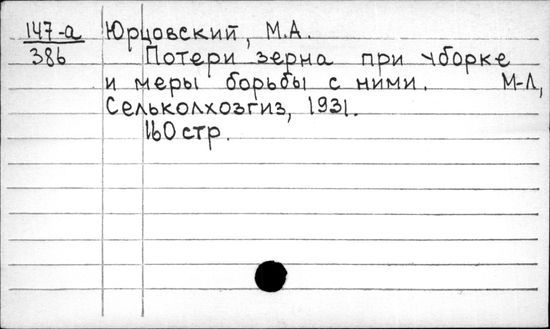 147-а Юрцовский, М.А.
386 Потери зерна при уборке
и меры борьбы с ними. М-Л,
Сельколхозгиз, 1931.
160 стр.